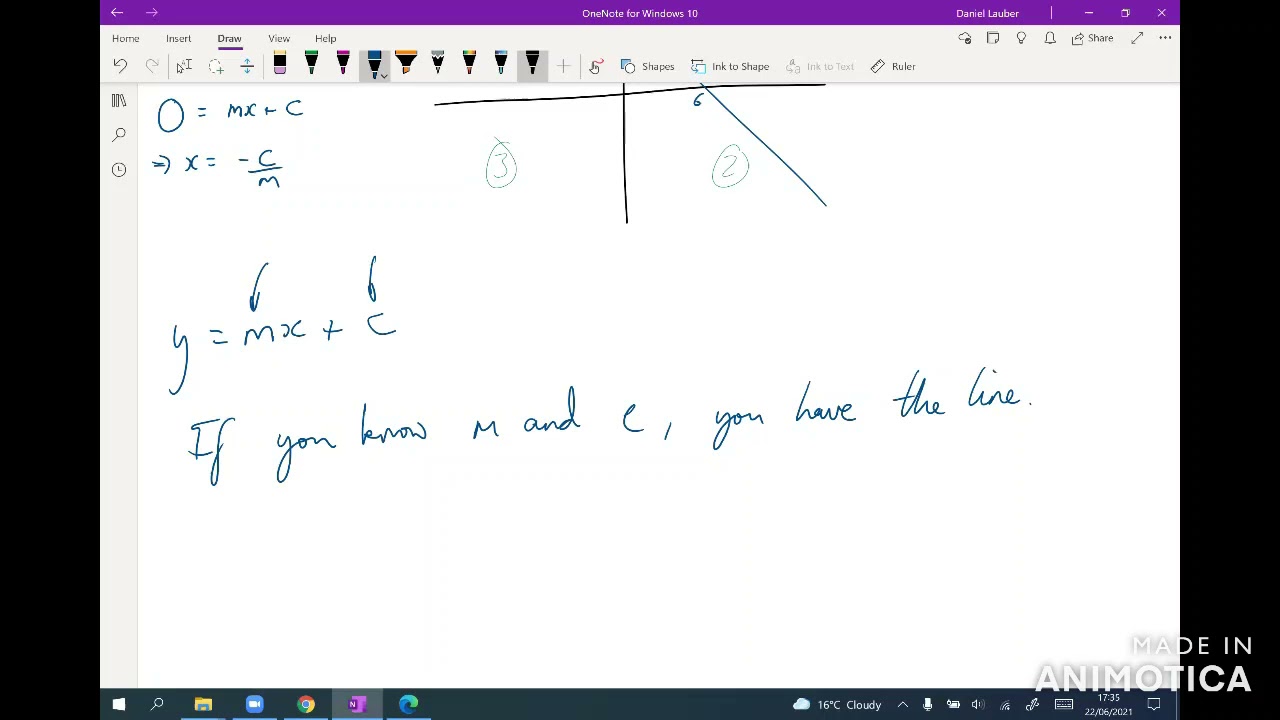 OneNote for Windows 10
Daniel Lauber
Home Insert Draw View Help
Share
Shapes Ink to Shape Ink to Text Ruler
0 = mx + c
6
⇒ x = -c/m
3
2
y = mx + c
If you know m and c, you have the line.
MADE IN
ANIMOTICA
16°C Cloudy
17:35
22/06/2021